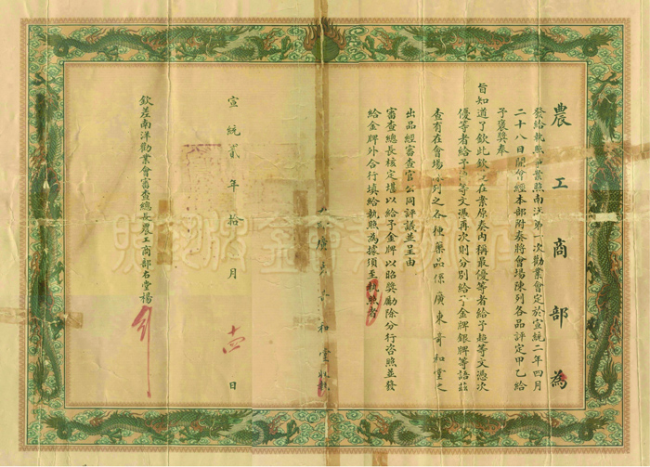 農工商部為
發給執照事案照南洋第一次勸業會定於宣統二年四月
二十八日開會經本部附奏將會場陳列各品評定甲乙給
予褒獎奉
旨知道了欽此欽 在案原奏內稱最優等者給予超等文憑次
優等者給予 等文憑再次則分別給予金牌銀牌等語茲
查有在會場 列之各種藥品係廣東 和堂之
出品經審查官公同評議並呈由
審查總長核定堪以給予金牌以昭獎勵除分行咨照並發
給金牌外合行填給執照為據須至執照者
廣 和堂
宣統貳年拾月 日
欽差南洋勸業會審查總長農工商部右堂楊